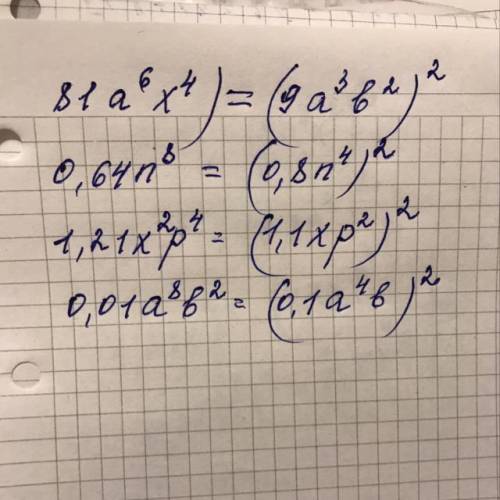 81a⁶x⁴) = (9a³b²)²
0,64n⁸ = (0,8n⁴)²
1,21x²p⁴ = (1,1xp²)²
0,01a⁸b² = (0,1a⁴b)²